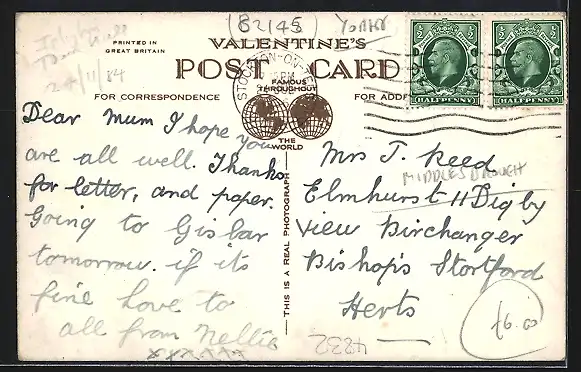 B2145
YORKS
24/11/84
PRINTED IN
GREAT BRITAIN
VALENTINE'S
POST CARD
FAMOUS
THROUGHOUT
THE
WORLD
FOR CORRESPONDENCE
FOR ADDR
STOCKTON-ON-TEES
½ ½
HALFPENNY
½ ½
HALFPENNY
THIS IS A REAL PHOTOGRAPH
Dear Mum I hope you
are all well. Thanks
for letter, and paper.
Going to Gisbar
tomorrow. if its
fine love to
all from Nellie
xxxxxxx
Mrs J. Reed
MIDDLESBROUGH
Elmhurst 11 Digby
View Birchanger
Bishop's Stortford
Herts
4832
£6.00